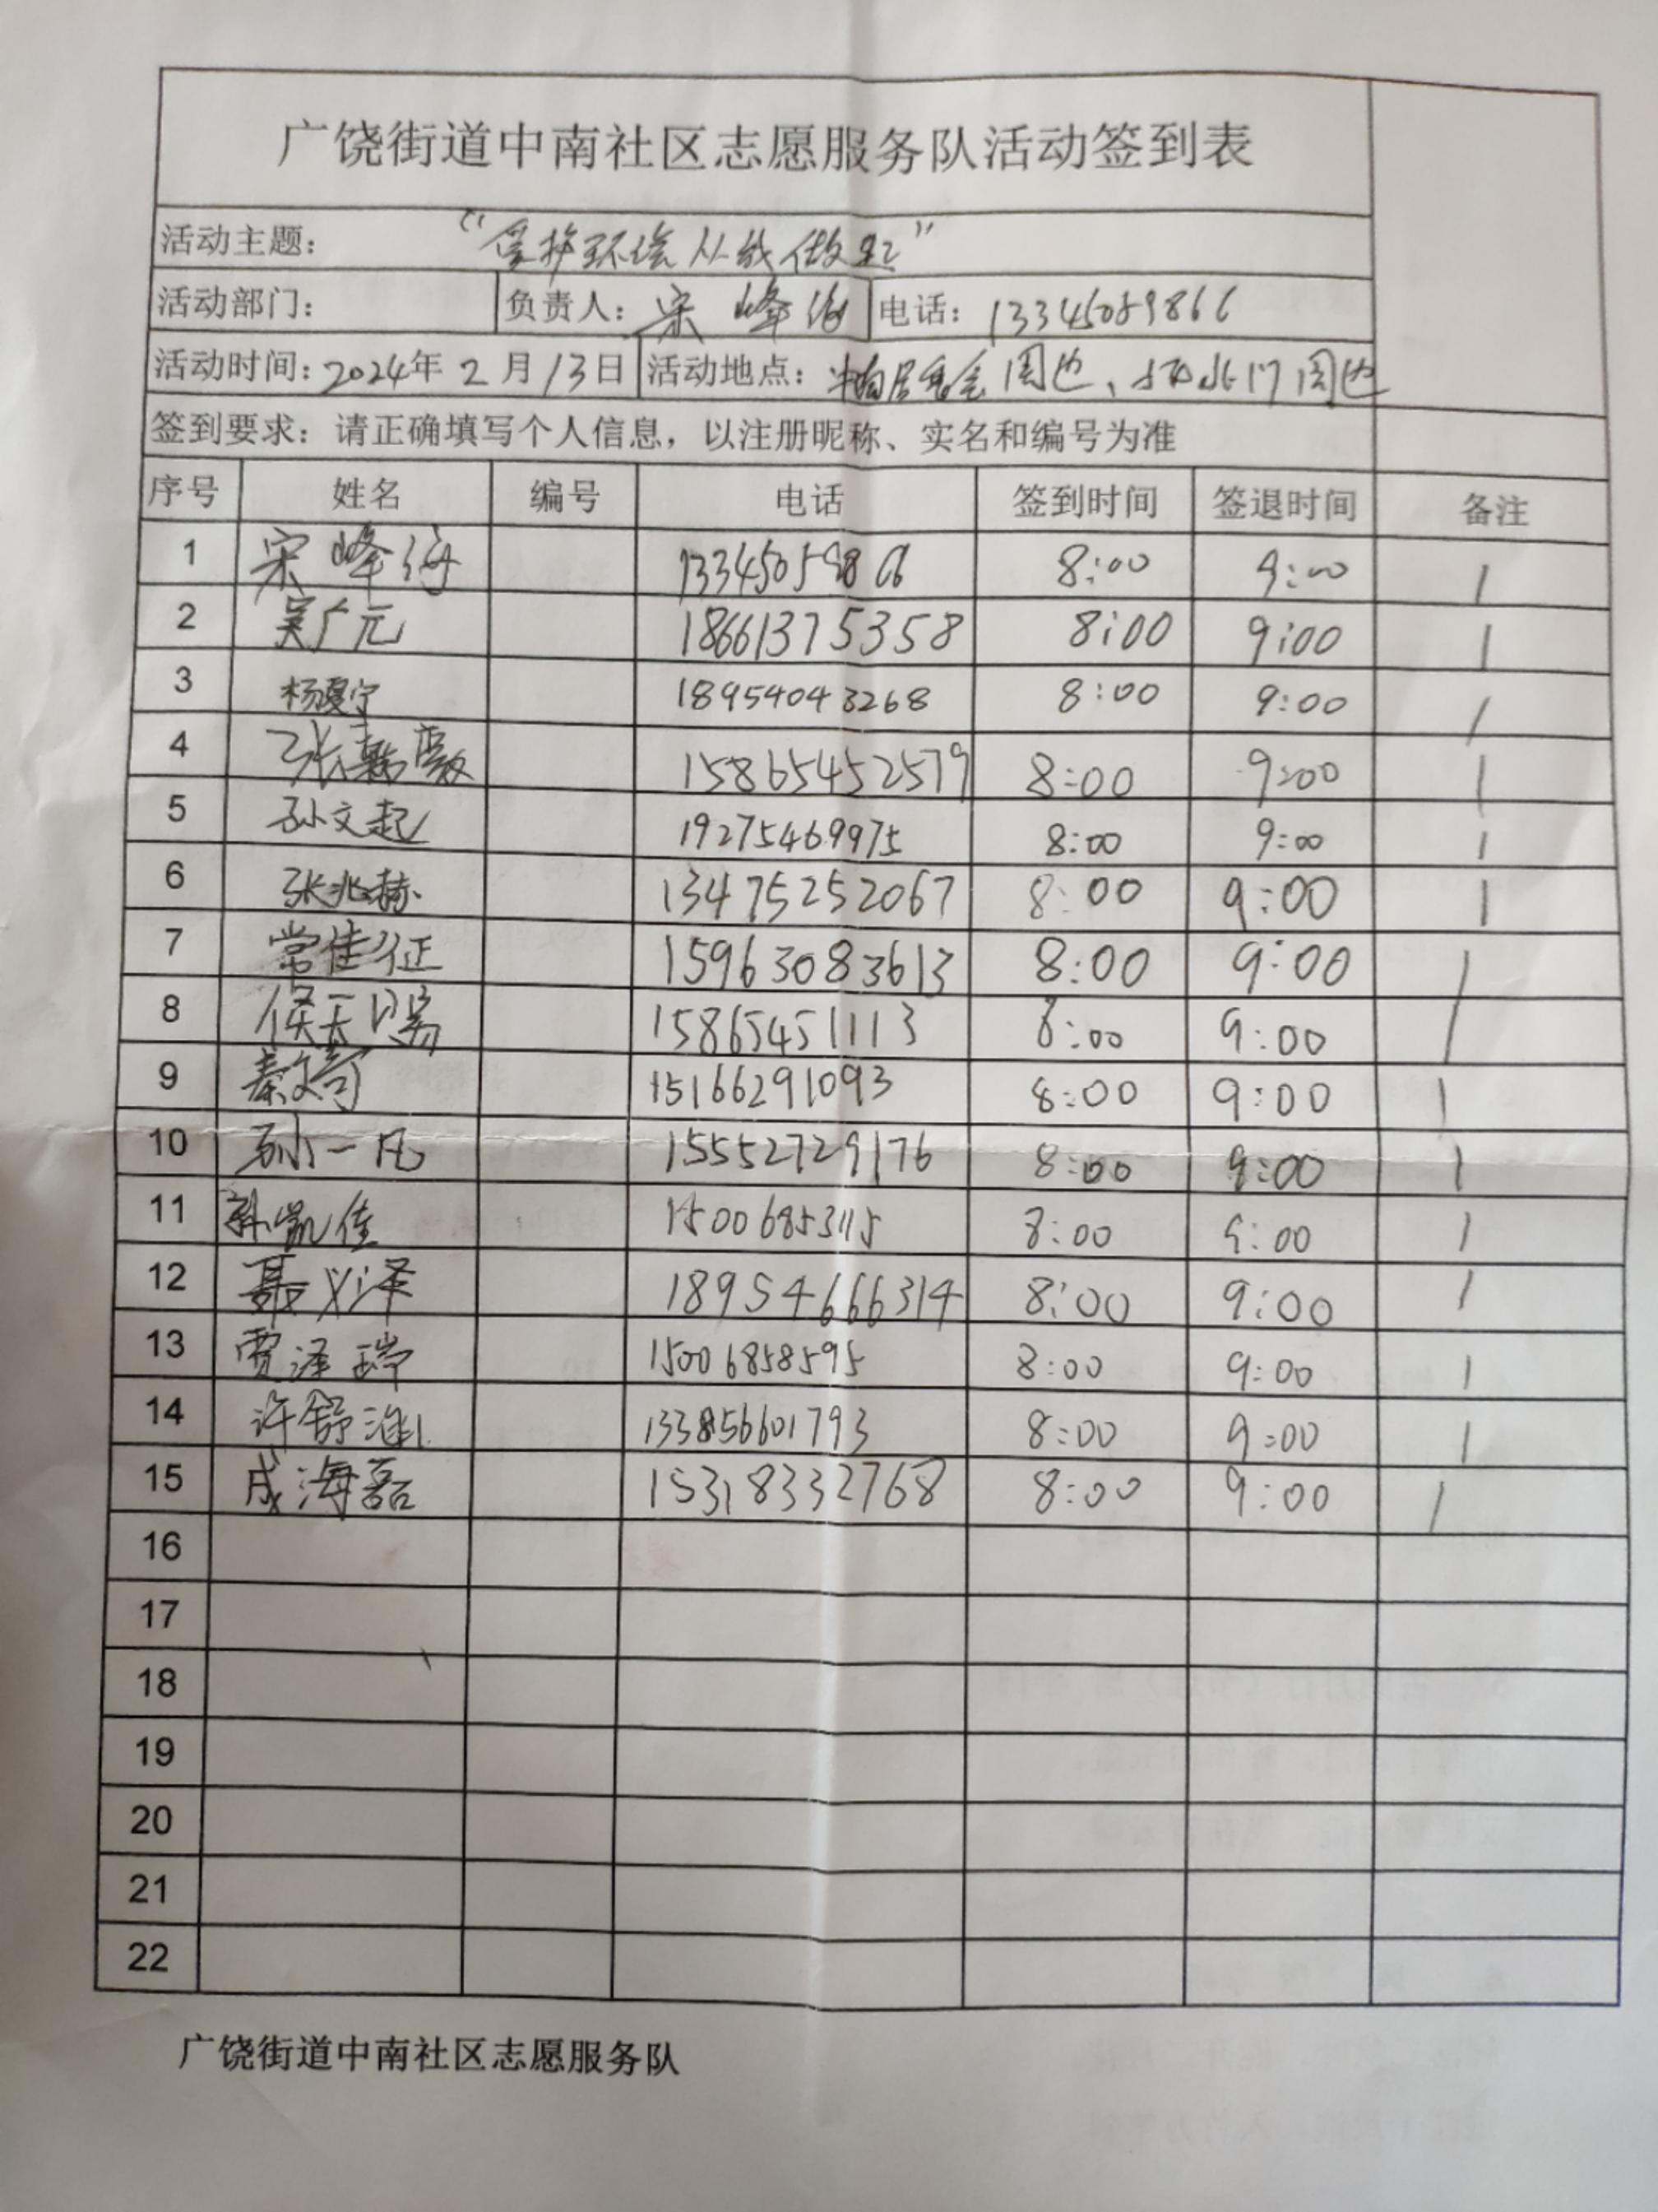 广饶街道中南社区志愿服务队活动签到表
活动主题： “爱护环境从我做起”
活动部门： 负责人：宋峰海 电话：13345059866
活动时间：2024年2月13日 活动地点： 周边、 周边
签到要求：请正确填写个人信息，以注册昵称、实名和编号为准
序号 姓名 编号 电话 签到时间 签退时间 备注
1 宋峰海 8:00 9:00 /
2 吴广元 18661375358 8:00 9:00 /
3 杨夏宁 18954043268 8:00 9:00 /
4 张 15865452579 8:00 9:00 /
5 孙文起 19275469975 8:00 9:00 /
6 张兆赫 13475252067 8:00 9:00 /
7 常佳征 15963083613 8:00 9:00 /
8 侯天赐 15865451113 8:00 9:00 /
9 秦文奇 15166291093 8:00 9:00 /
10 孙一凡 15552729176 8:00 9:00 /
11 孙凯佳 15006853115 8:00 9:00 /
12 聂义泽 18954666314 8:00 9:00 /
13 贾泽瑞 15006858595 8:00 9:00 /
14 许舒涵 133856601793 8:00 9:00 /
15 成海磊 15318332768 8:00 9:00 /
16
17
18
19
20
21
22
广饶街道中南社区志愿服务队